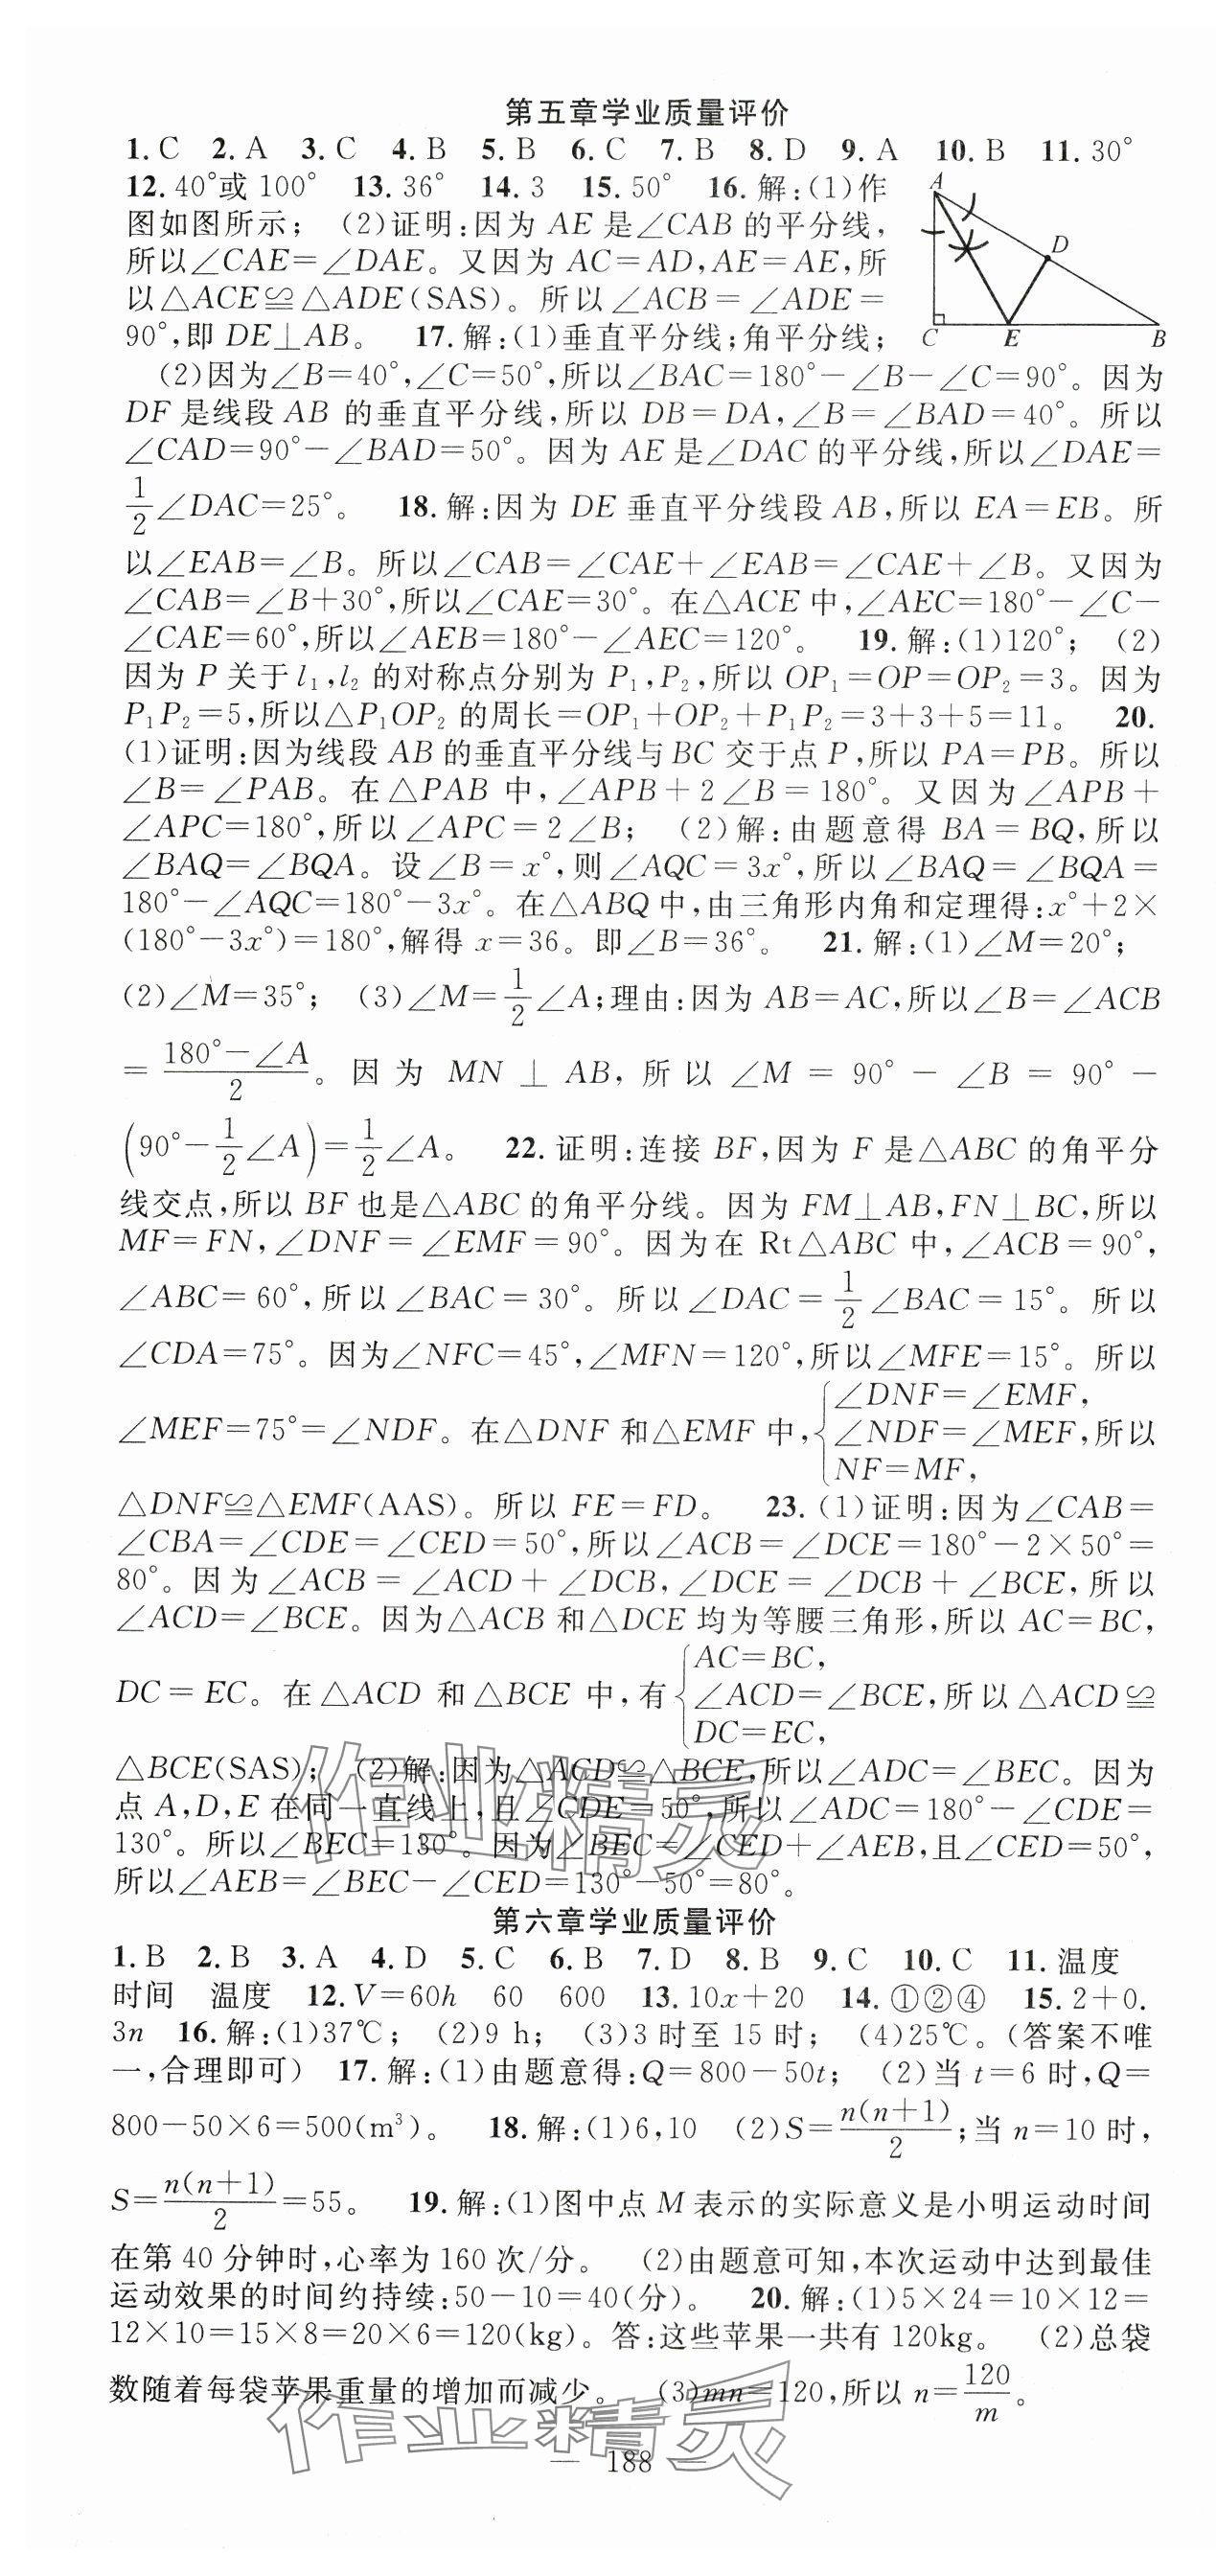 第五章学业质量评价
1.C 2.A 3.C 4.B 5.B 6.C 7.B 8.D 9.A 10.B 11.30°
12.40°或 100° 13.36° 14.3 15.50° 16.解:(1)作
图如图所示; (2)证明:因为 AE 是∠CAB 的平分线,
所以∠CAE=∠DAE。又因为 AC=AD,AE=AE,所
以△ACE≌△ADE(SAS)。所以∠ACB=∠ADE=
90°,即 DE⊥AB。 17.解:(1)垂直平分线;角平分线;
A
D
C
E
B
(2)因为∠B=40°,∠C=50°,所以∠BAC=180°-∠B-∠C=90°。因为
DF 是线段 AB 的垂直平分线,所以 DB=DA,∠B=∠BAD=40°。所以
∠CAD=90°-∠BAD=50°。因为 AE 是∠DAC 的平分线,所以∠DAE=
1/2∠DAC=25°。 18.解:因为 DE 垂直平分线段 AB,所以 EA=EB。所
以∠EAB=∠B。所以∠CAB=∠CAE+∠EAB=∠CAE+∠B。又因为
∠CAB=∠B+30°,所以∠CAE=30°。在△ACE 中,∠AEC=180°-∠C-
∠CAE=60°,所以∠AEB=180°-∠AEC=120°。 19.解:(1)120°; (2)
因为 P 关于 l₁,l₂ 的对称点分别为 P₁,P₂,所以 OP₁=OP=OP₂=3。因为
P₁P₂=5,所以△P₁OP₂ 的周长=OP₁+OP₂+P₁P₂=3+3+5=11。 20.
(1)证明:因为线段 AB 的垂直平分线与 BC 交于点 P,所以 PA=PB。所以
∠B=∠PAB。在△PAB 中,∠APB+2∠B=180°。又因为∠APB+
∠APC=180°,所以∠APC=2∠B; (2)解:由题意得 BA=BQ,所以
∠BAQ=∠BQA。设∠B=x°,则∠AQC=3x°,所以∠BAQ=∠BQA=
180°-∠AQC=180°-3x°。在△ABQ 中,由三角形内角和定理得:x°+2×
(180°-3x°)=180°,解得 x=36。即∠B=36°。 21.解:(1)∠M=20°;
(2)∠M=35°; (3)∠M=1/2∠A;理由:因为 AB=AC,所以∠B=∠ACB
=(180°-∠A)/2。因为 MN⊥AB,所以∠M=90°-∠B=90°-
(90°-1/2∠A)=1/2∠A。 22.证明:连接 BF,因为 F 是△ABC 的角平分
线交点,所以 BF 也是△ABC 的角平分线。因为 FM⊥AB,FN⊥BC,所以
MF=FN,∠DNF=∠EMF=90°。因为在 Rt△ABC 中,∠ACB=90°,
∠ABC=60°,所以∠BAC=30°。所以∠DAC=1/2∠BAC=15°。所以
∠CDA=75°。因为∠NFC=45°,∠MFN=120°,所以∠MFE=15°。所以
∠DNF=∠EMF,
∠MEF=75°=∠NDF。在△DNF 和△EMF 中,{∠NDF=∠MEF,所以
NF=MF,
△DNF≌△EMF(AAS)。所以 FE=FD。 23.(1)证明:因为∠CAB=
∠CBA=∠CDE=∠CED=50°,所以∠ACB=∠DCE=180°-2×50°=
80°。因为∠ACB=∠ACD+∠DCB,∠DCE=∠DCB+∠BCE,所以
∠ACD=∠BCE。因为△ACB 和△DCE 均为等腰三角形,所以 AC=BC,
AC=BC,
DC=EC。在△ACD 和△BCE 中,有{∠ACD=∠BCE,所以△ACD≌
DC=EC,
△BCE(SAS); (2)解:因为△ACD≌△BCE,所以∠ADC=∠BEC。因为
点 A,D,E 在同一直线上,且∠CDE=50°,所以∠ADC=180°-∠CDE=
130°。所以∠BEC=130°。因为∠BEC=∠CED+∠AEB,且∠CED=50°,
所以∠AEB=∠BEC-∠CED=130°-50°=80°。
作业精灵
第六章学业质量评价
1.B 2.B 3.A 4.D 5.C 6.B 7.D 8.B 9.C 10.C 11.温度
时间 温度 12.V=60h 60 600 13.10x+20 14.①②④ 15.2+0.
3n 16.解:(1)37℃; (2)9 h; (3)3 时至 15 时; (4)25℃。(答案不唯
一,合理即可) 17.解:(1)由题意得:Q=800-50t; (2)当 t=6 时,Q=
800-50×6=500(m³)。 18.解:(1)6,10 (2)S=n(n+1)/2;当 n=10 时,
S=n(n+1)/2=55。 19.解:(1)图中点 M 表示的实际意义是小明运动时间
在第 40 分钟时,心率为 160 次/分。 (2)由题意可知,本次运动中达到最佳
运动效果的时间约持续:50-10=40(分)。 20.解:(1)5×24=10×12=
12×10=15×8=20×6=120(kg)。答:这些苹果一共有 120kg。 (2)总袋
数随着每袋苹果重量的增加而减少。 (3)mn=120,所以 n=120/m。
作业精灵
— 188 —